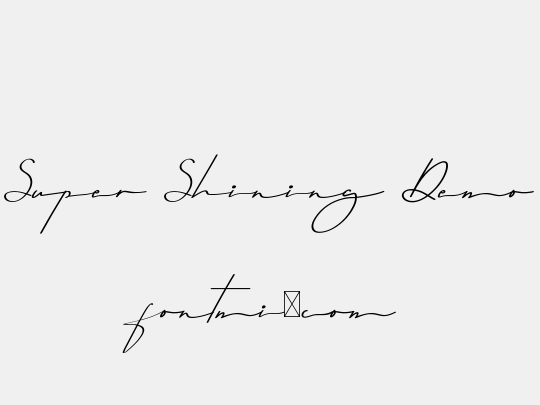 Super Shining Demo
fontmi☒com